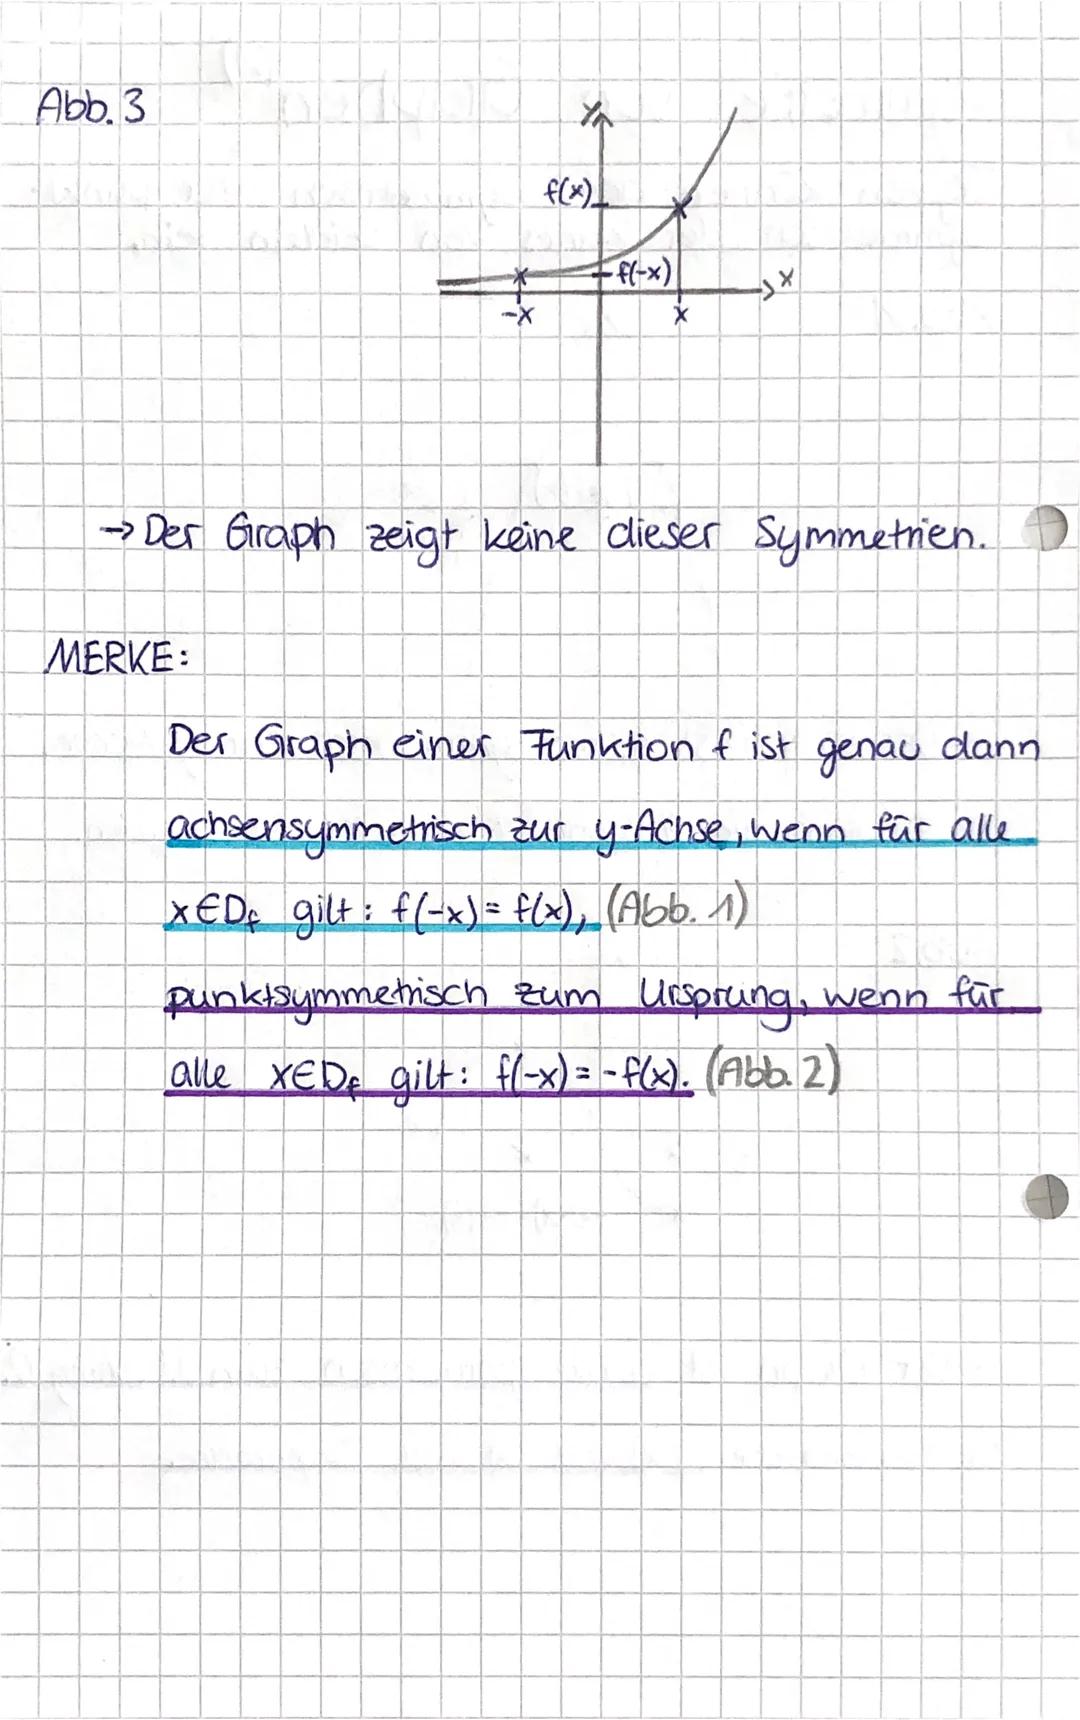 Abb. 3
y
f(x)
f(-x)
x
-x
x
→ Der Graph zeigt keine dieser Symmetrien.
MERKE:
Der Graph einer Funktion f ist genau dann
achsensymmetrisch zur y-Achse, wenn für alle
x∈Df gilt: f(-x) = f(x), (Abb. 1)
punktsymmetrisch zum Ursprung, wenn für
alle x∈Df gilt: f(-x) = -f(x). (Abb. 2)